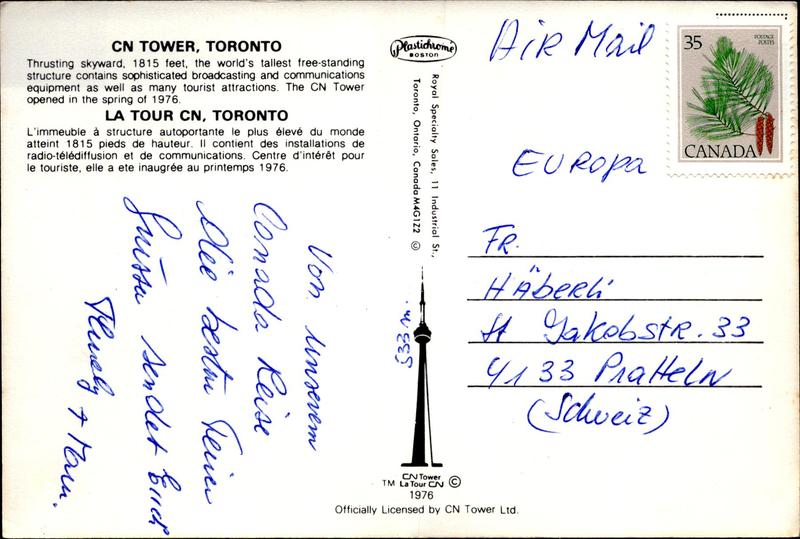 CN TOWER, TORONTO
Thrusting skyward, 1815 feet, the world's tallest free-standing
structure contains sophisticated broadcasting and communications
equipment as well as many tourist attractions. The CN Tower
opened in the spring of 1976.
LA TOUR CN, TORONTO
L'immeuble à structure autoportante le plus élevé du monde
atteint 1815 pieds de hauteur. Il contient des installations de
radio-télédiffusion et de communications. Centre d'intérêt pour
le touriste, elle a ete inaugrée au printemps 1976.
Von unserem
Canada Reise
Alle besten
Grüsse sendet Euch
Plastichrome
BOSTON
Royal Specialty Sales, 11 Industrial St.,
Toronto, Ontario, Canada M4G1Z2 ©
553 m.
CN Tower
TM La Tour CN ©
1976
Officially Licensed by CN Tower Ltd.
Air Mail
35
POSTAGE
POSTES
CANADA
EUROPA
FR.
HÄBERLi
St Jakobstr. 33
4133 PRATTELN
(Schweiz)